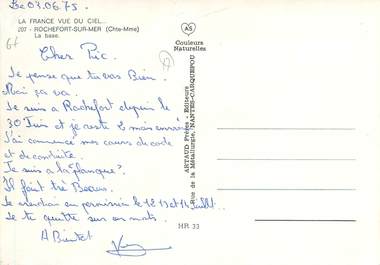 Be 03.06.75.
LA FRANCE VUE DU CIEL...
207 - ROCHEFORT-SUR-MER (Chte-Mme)
La base.
Cher Pic.
Je pense que tu vas Bien.
Moi ça va.
Je suis a Rochefort depuis le
30 Juin et je reste 2 mois
J'ai commencé mes cours de code
et de conduite.
Je suis a la "planque".
Il fait trè Beau.
Je en permission le 12 13 et 14 Juillet.
Je te quitte sur ces mots.
A Bientot
Couleurs
Naturelles
ARTAUD Frères, Editeurs
Rue de la Métallurgie, NANTES-CARQUEFOU
HR 33